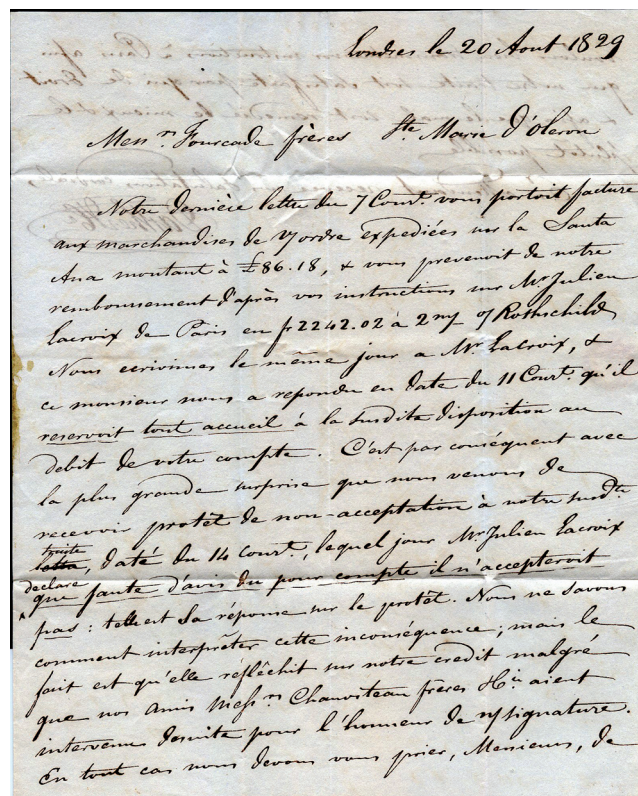 Londres le 20 Aout 1829
Messrs. Fourcade frères Ste. Marie d'Oleron
Notre dernière lettre du 7 Court. vous portoit facture
aux marchandises de v/ordre expediées sur la Santa
Ana montant à £86.18, & vous prevenoit de notre
remboursement d'après vos instructions sur Mr. Julien
Lacroix de Paris en fr 2242.02 à 2 m/ o/ Rothschild
Nous ecrivimes le même jour a Mr. Lacroix, &
ce monsieur nous a repondu en date du 11 Court. qu'il
reservoit tout accueil à la susdite disposition au
debit de votre compte. C'est par conséquent avec
la plus grande surprise que nous venons de
recevoir protêt de non-acceptation à notre susdte
traite, daté du 14 Court., lequel jour Mr Julien Lacroix
declare que faute d'avis du pour compte il n'accepteroit
pas : telle est sa réponse sur le protêt. Nous ne savons
comment interprêter cette inconséquence; mais le
fait est qu'elle reflêchit sur notre credit malgré
que nos Amis Messrs Chauviteau frères & Cie aient
intervenu desuite pour l'honneur de n/signature.
En tout cas nous devons vous prier, Messieurs, de